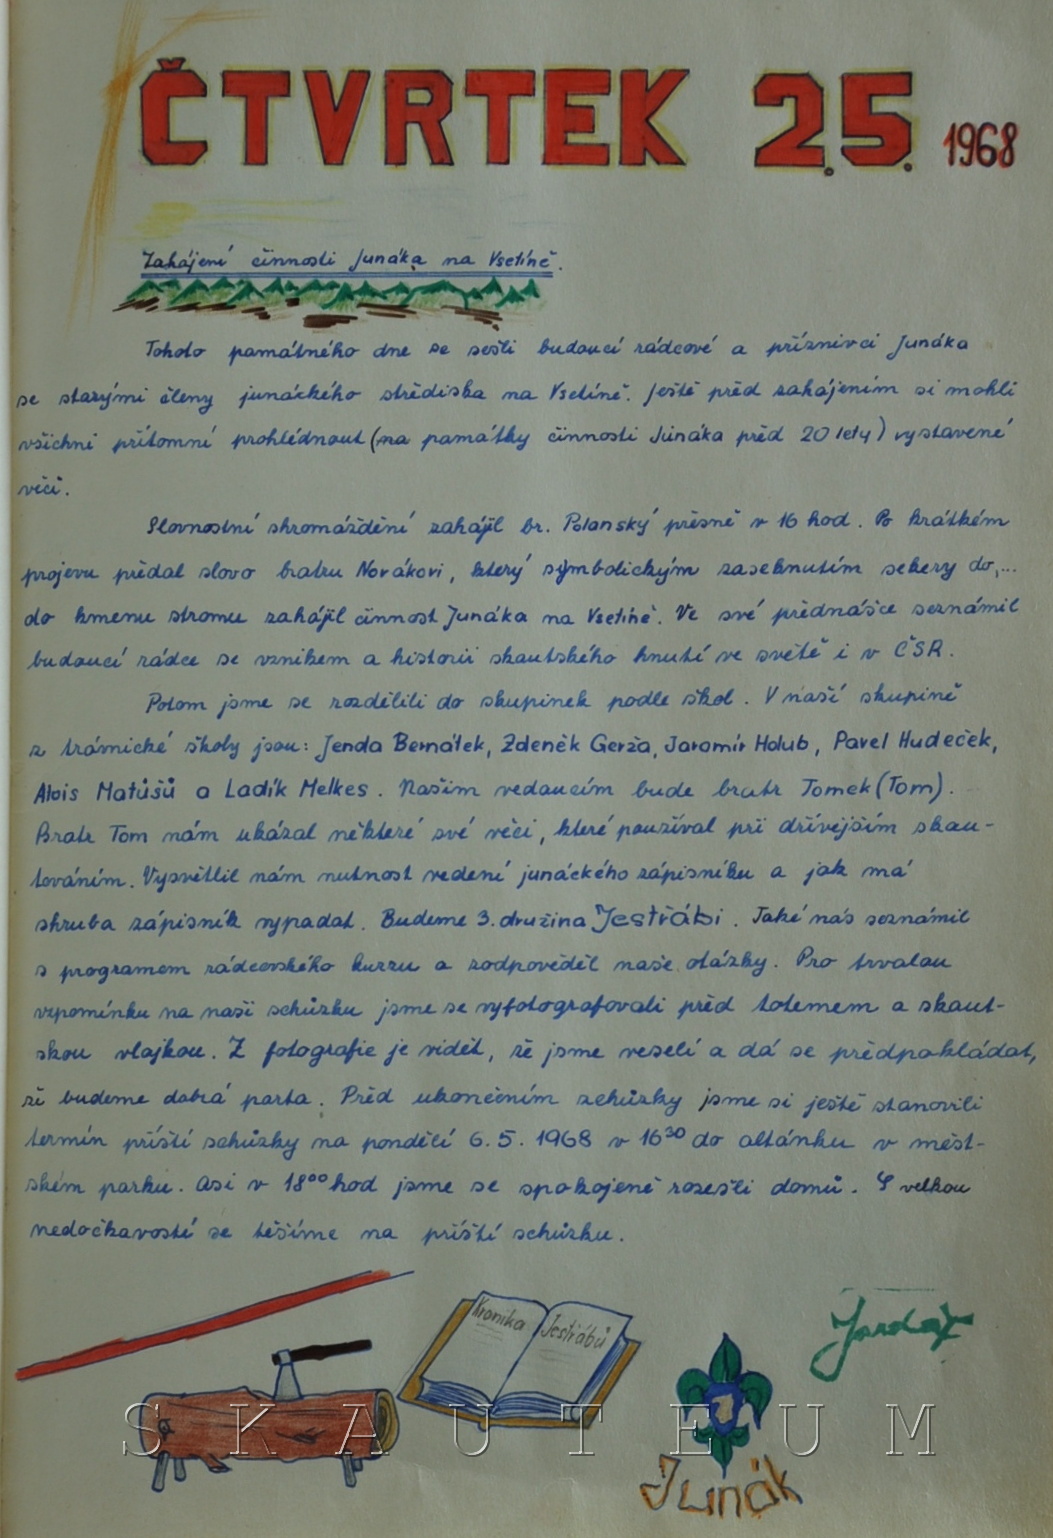 ČTVRTEK 2.5. 1968
Zahájení činnosti Junáka na Vsetíně.
Tohoto památného dne se sešli budoucí rádcové a příznivci Junáka
se starými členy junáckého střediska na Vsetíně. Ještě před zahájením si mohli
všichni přítomní prohlédnout (na památky činnosti Junáka před 20 lety) vystavené
věci.
Slavnostní shromáždění zahájil br. Polanský přesně v 16 hod. Po krátkém
projevu předal slovo bratru Novákovi, který symbolickým zaseknutím sekery do,...
do kmenu stromu zahájil činnost Junáka na Vsetíně. Ve své přednášce seznámil
budoucí rádce se vznikem a historii skautského hnutí ve světě i v ČSR.
Potom jsme se rozdělili do skupinek podle škol. V naší skupině
z trávnické školy jsou: Jenda Bernátek, Zdeněk Gerža, Jaromír Holub, Pavel Hudeček,
Alois Matůšů a Ladík Melkes. Našim vedoucím bude bratr Tomek (Tom).
Bratr Tom nám ukázal některé své věci, které používal při dřívějším skau-
továním. Vysvětlil nám nutnost vedení junáckého zápisníku a jak má
zhruba zápisník vypadat. Budeme 3. družina Jestřábi. Také nás seznámil
s programem rádcovského kurzu a zodpověděl naše otázky. Pro trvalou
vzpomínku na naši schůzku jsme se vyfotografovali před totemem a skaut-
skou vlajkou. Z fotografie je vidět, že jsme veselí a dá se předpokládat,
že budeme dobrá parta. Před ukončením schůzky jsme si ještě stanovili
termín příští schůzky na pondělí 6.5. 1968 v 16³⁰ do altánku v měst-
ském parku. Asi v 18⁰⁰ hod jsme se spokojeně rozešli domů. S velkou
nedočkavostí se těšíme na příští schůzku.
Kronika Jestřábů
Junák
SKAUTEUM